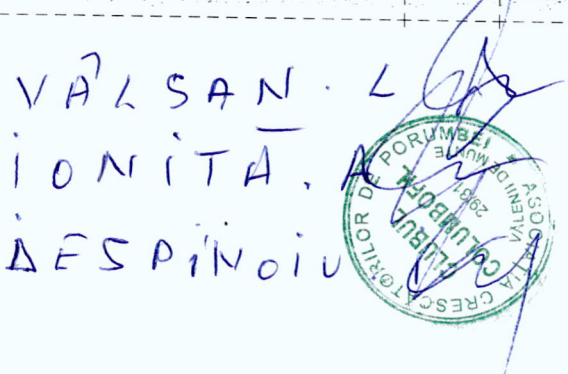 VÂLSAN. L
IONITĂ. A
DESPINOIU
ASOCIAȚIA CRESCĂTORILOR DE PORUMBEI
CLUBUL
COLUMBOFIL
VALENII DE MUNTE